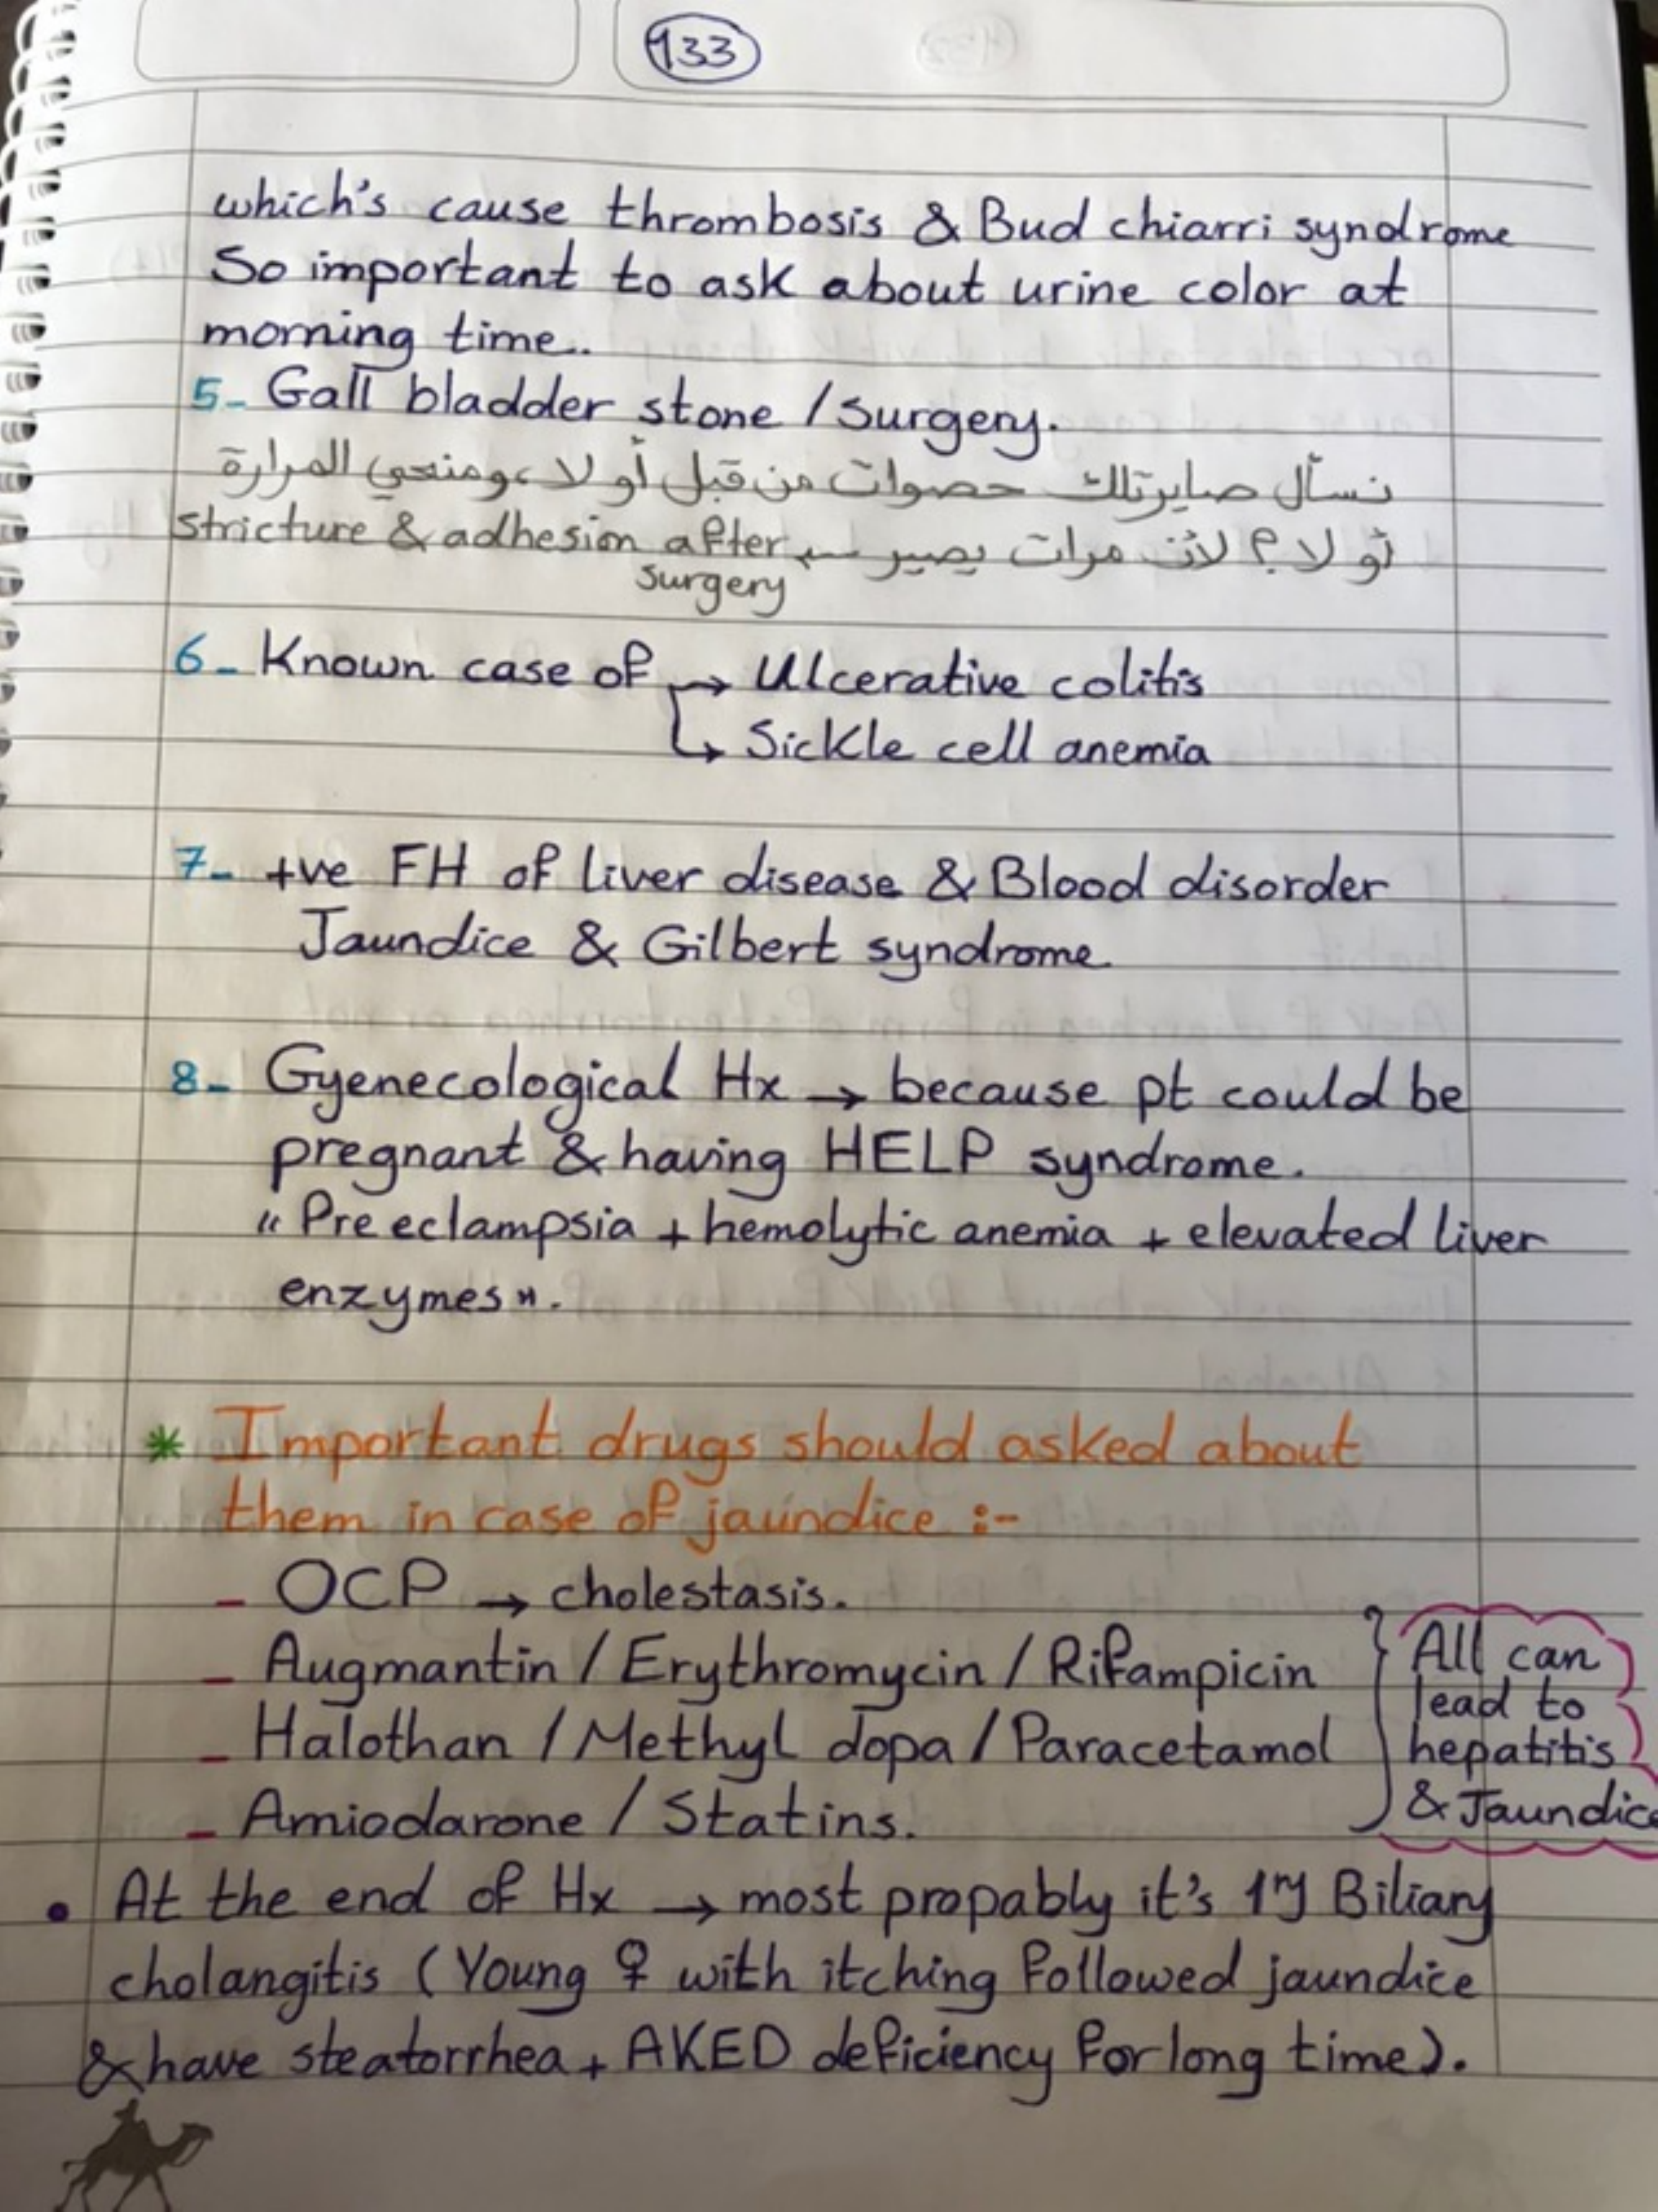 133
which's cause thrombosis & Bud chiarri syndrome
So important to ask about urine color at
morning time..
5- Gall bladder stone / surgery.
نسأل صايرتلك حصوات من قبل أو لا، ومنحي المرارة
أو لا؟ لأن مرات يصير ← stricture & adhesion after
surgery
6- Known case of → Ulcerative colitis
↳ Sickle cell anemia
7- +ve FH of liver disease & Blood disorder
Jaundice & Gilbert syndrome
8- Gyenecological Hx → because pt could be
pregnant & having HELP syndrome.
"Pre eclampsia + hemolytic anemia + elevated liver
enzymes".
* Important drugs should asked about
them in case of jaundice :-
- OCP → cholestasis.
- Augmantin / Erythromycin / Rifampicin
- Halothan / Methyl dopa / Paracetamol
- Amiodarone / Statins.
} All can
lead to
hepatitis
& Jaundice
• At the end of Hx → most propably it's 1ry Biliary
cholangitis (Young ♀ with itching followed jaundice
& have steatorrhea + AKED deficiency for long time).